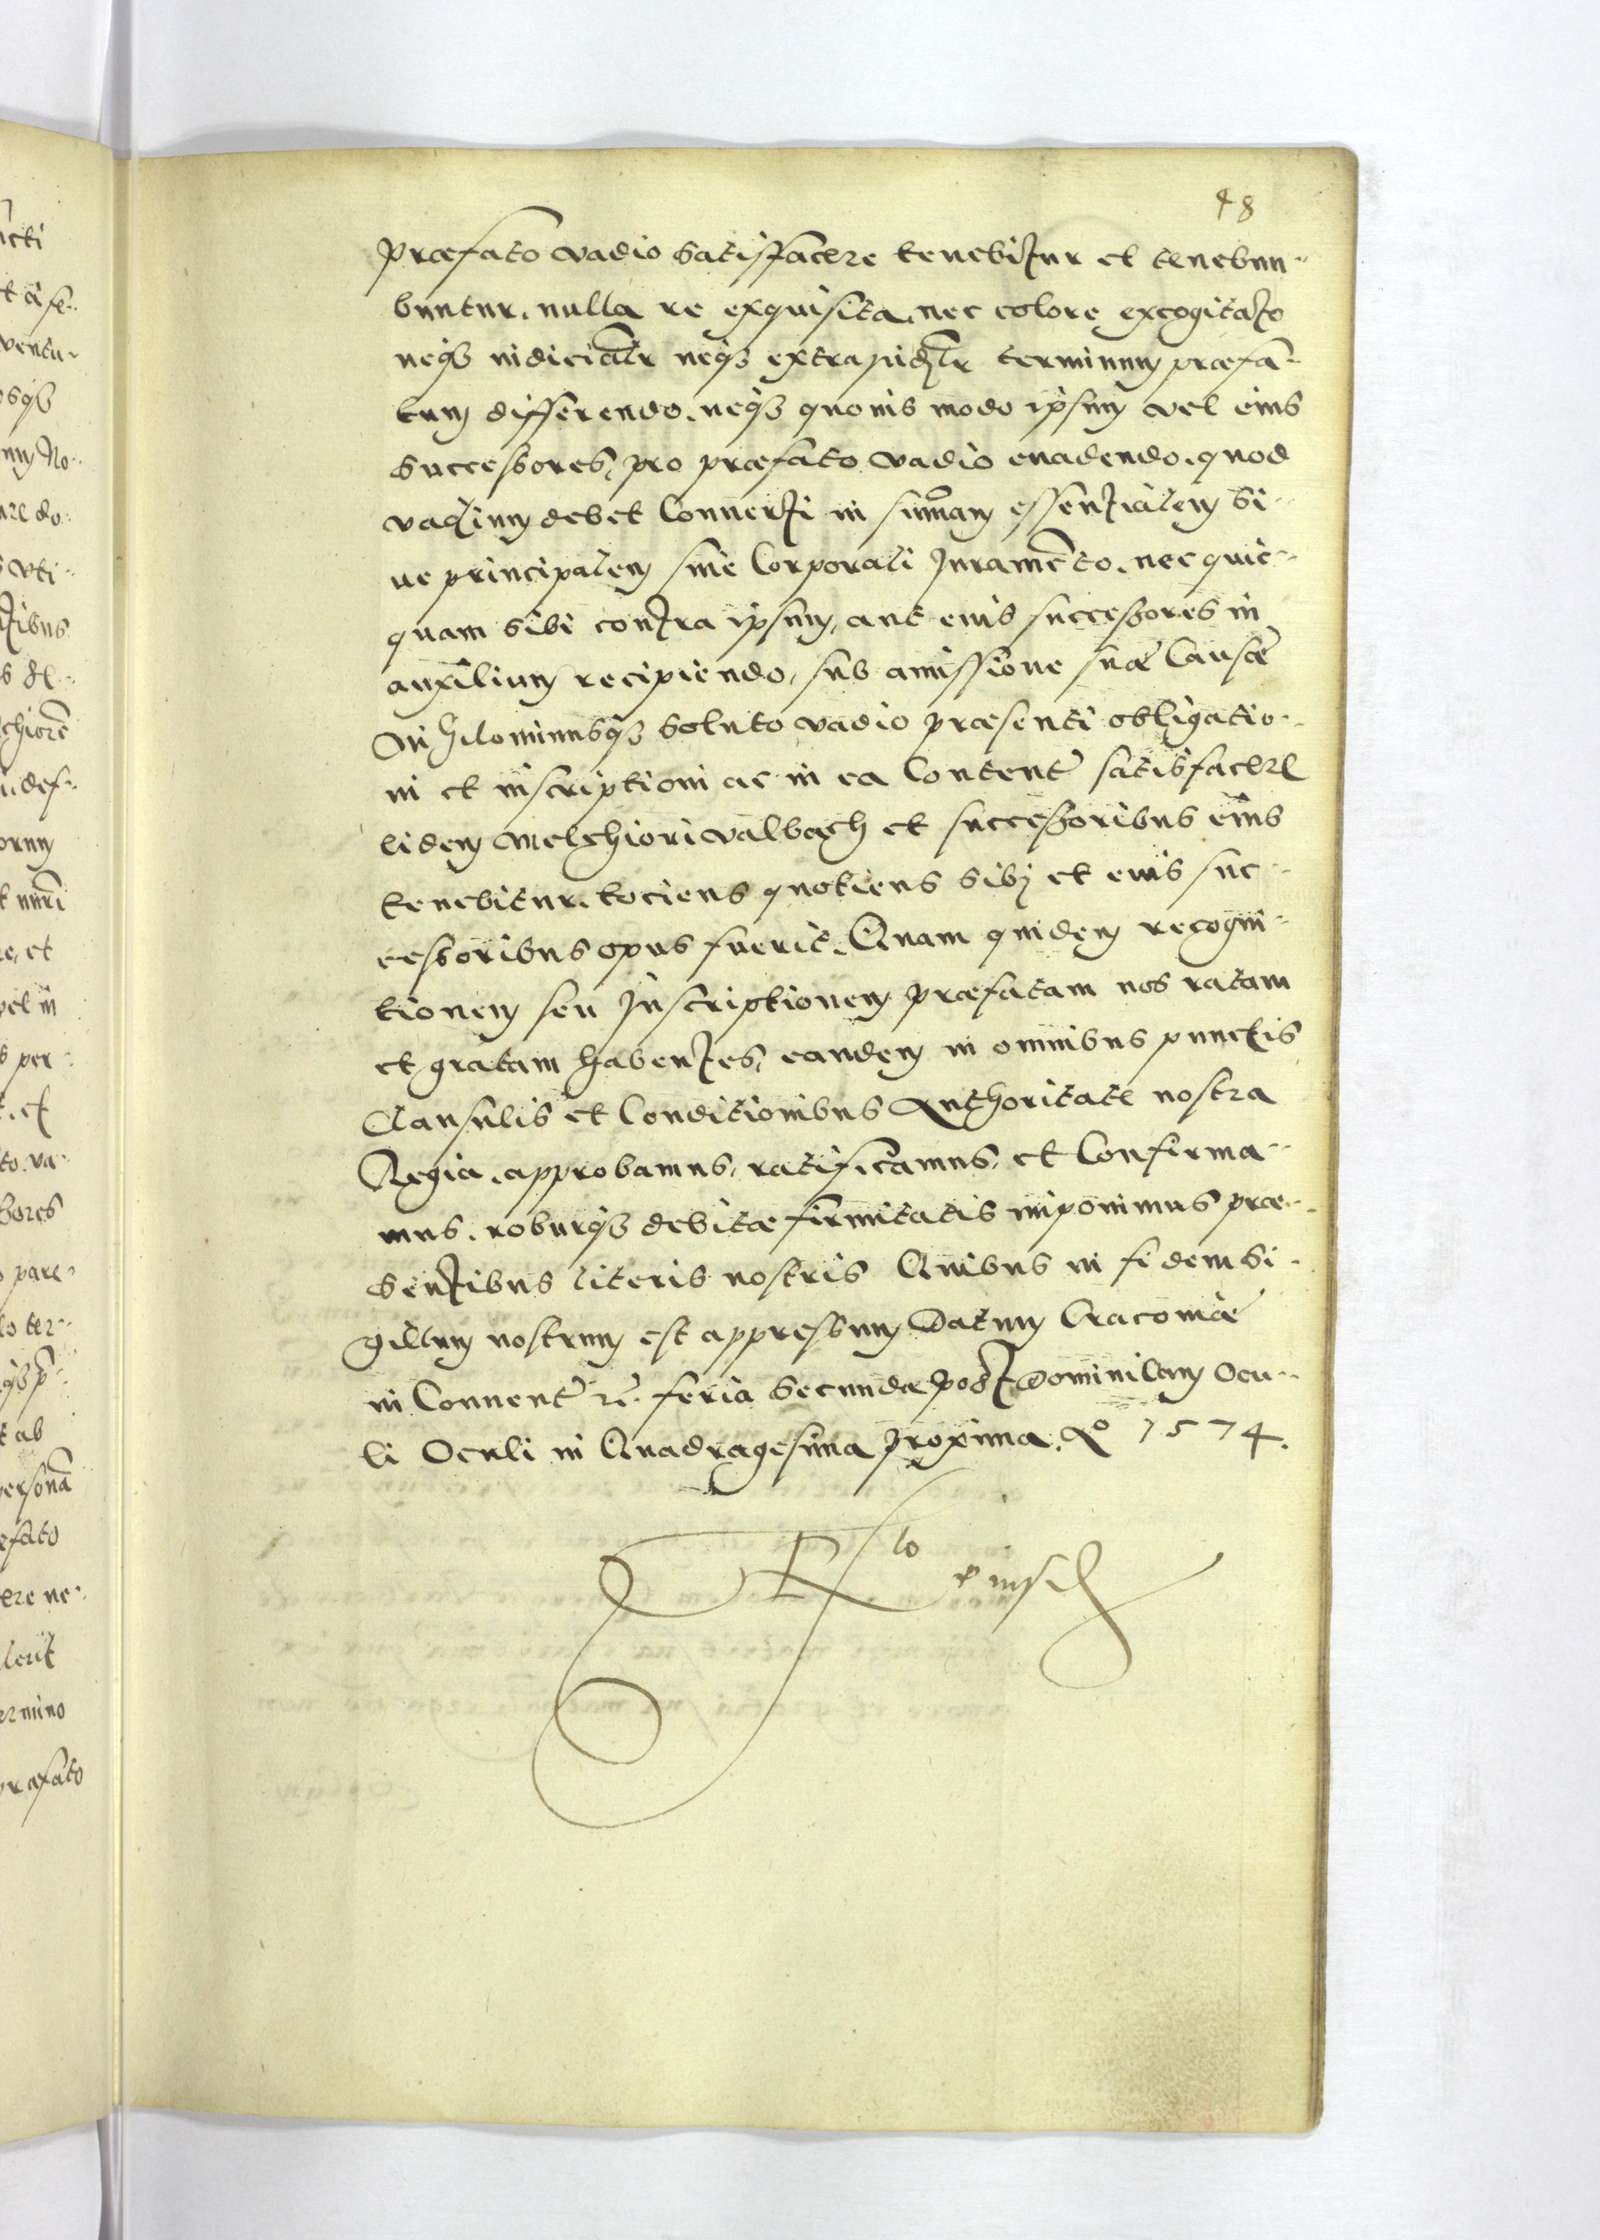 48
præfato vadio satisffacere tenebitur et tenebun-
buntur. nulla re exquisita. nec colore excogitato
neqꝫ iudicialr neqꝫ extraiudlr terminum præfa-
tum differendo. neqꝫ quouis modo ipsum vel eius
successores, pro præfato vadio euadendo. quod
vadium debet Conuerti in summam essentialem si-
ue principalem sine Corporali Juramento. nec quic-
quam sibi contra ipsum, aut eius successores in
auxilium recipiendo, sub amissione suæ Causæ
Nihilominusqꝫ soluto vadio præsenti obligatio-
ni et inscriptioni ac in ea Content satisfacere
eidem Melchiori Valbach et successoribus eius
tenebitur. tociens quotiens sibj et eius suc-
cessoribus opus fuerit. Quam quidem recogni-
tionem seu Inscriptionem præfatam nos ratam
et gratam habentes, eandem in omnibus punctis
Clausulis et Conditionibus Authoritate nostra
Regia. approbamus, ratificamus, et Confirma-
mus. roburqꝫ debitæ firmitatis imponimus præ-
sentibus literis nostris Quibus in fidem si-
gillum nostrum est appressum Datum Cracouiæ
in Conuent re. feria secunda post Dominicam Ocu-
li Oculi in Quadragesima proxima. Aº 1574.